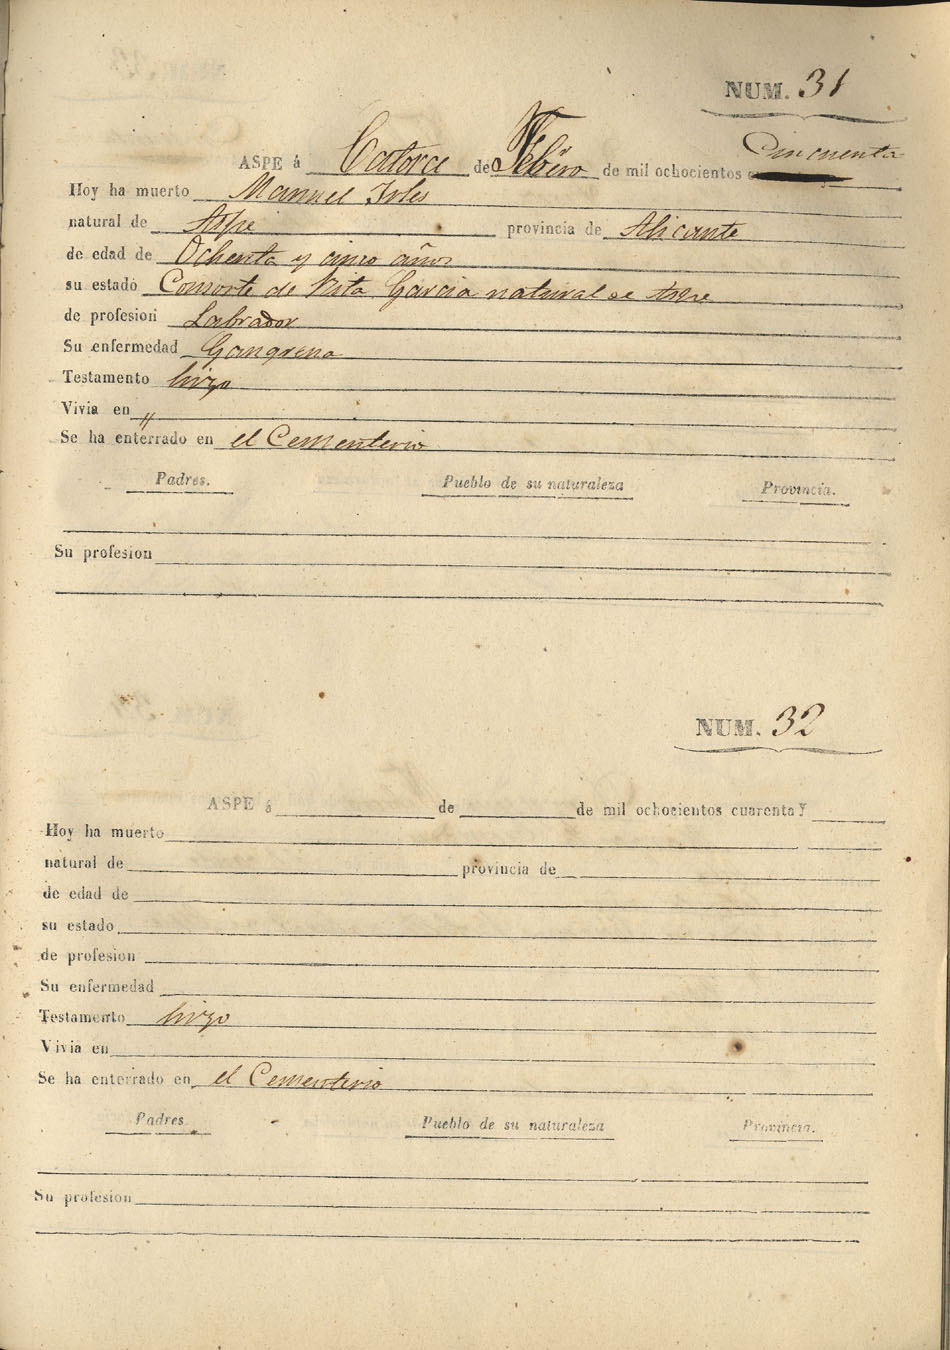 NUM. 31
ASPE á Catorce de Febro de mil ochocientos Cincuenta
Hoy ha muerto Manuel Irles
natural de Aspe provincia de Alicante
de edad de Ochenta y cinco años
su estado Consorte de Rita Garcia natural de Aspe
de profesion Labrador
Su enfermedad Gangrena
Testamento hizo
Vivia en "
Se ha enterrado en el Cementerio
Padres. Pueblo de su naturaleza Provincia.
Su profesion
NUM. 32
ASPE á de de mil ochocientos cuarenta y
Hoy ha muerto
natural de provincia de
de edad de
su estado
de profesion
Su enfermedad
Testamento hizo
Vivia en
Se ha enterrado en el Cementerio
Padres. Pueblo de su naturaleza Provincia.
Su profesion